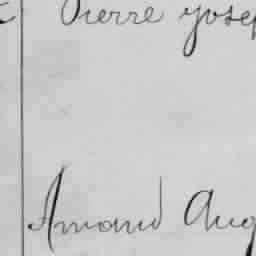 Pierre Josep
Amand Aug